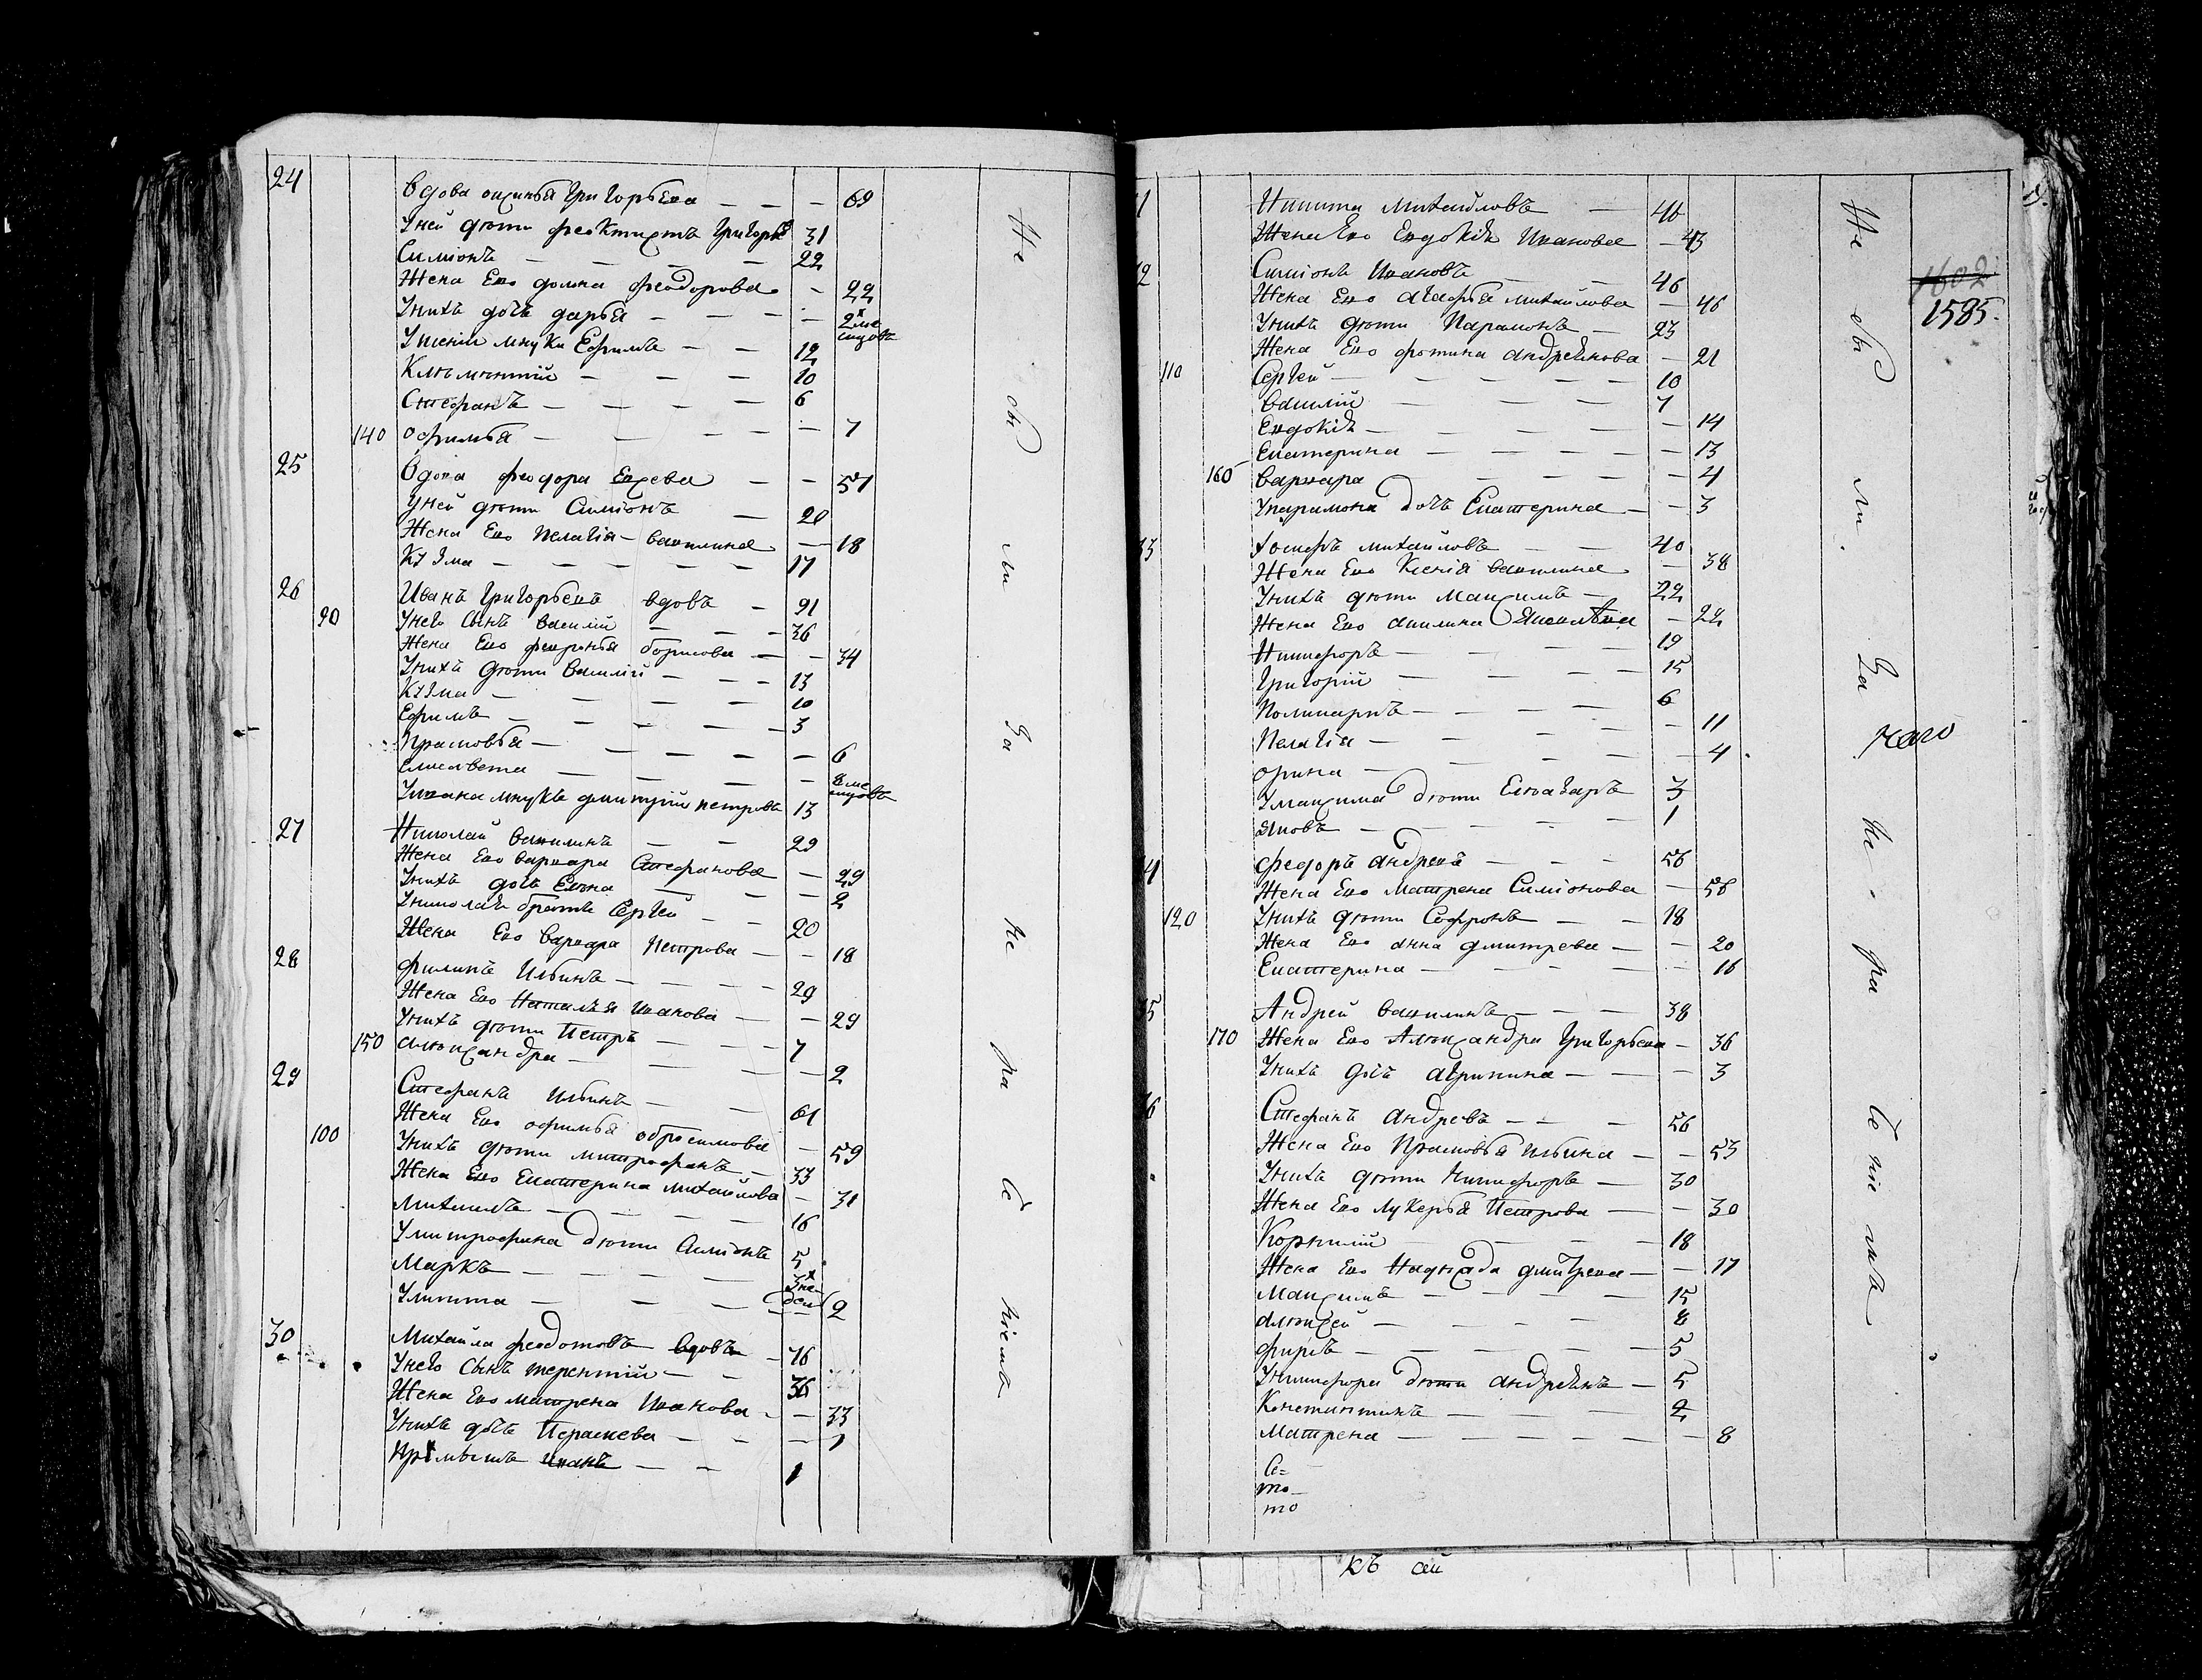 24 Вдова оксинья Григорьева — — — 69
Уней дѣти феоктистъ Григорье 31
Симіонъ — — — 22
Жена Ево домна феодорова — 22
Унихъ дочь дарья — — — — 2х ме
сицовъ
Уженіи мнуки Ефимъ — — 12
Климентій — — — 10
Стефанъ — — — — 6
140 офимья — — — — — 7
25 Вдова феодора Евсева — — 57
Уней дѣти Симіонъ — 20
Жена Ево пелагія василива — 18
Кузма — — — — — 17
26 Иванъ Григорьевъ вдовъ — 91
90 Унего Сынъ василій — — — 36
Жена Ево февронья борисова — — 34
Унихъ дѣти василій — — — 13
Кузма — — — — 10
Ефимъ — — — — — 3
Прасковья — — — — — 6
Елисавета — — — — 8 ме
сицовъ
Уивана мнукъ дмитрій петровъ 13
27 Николай василивъ — — 29
Жена Ево варвара Стефанова — 29
Унихъ дочь Елена — — — 2
Униколая братъ Сергей — — 20
Жена Ево варвара Петрова — — 18
28 филипъ Ильинъ — — — — 29
Жена Ево Наталья Иванова — — 29
Унихъ дѣти Петръ — — — 7
150 александра — — — — 2
29 Стефанъ ильинъ — — 61
Жена Ево офимья обросимова — 59
100 Унихъ дѣти митрофанъ — 33
Жена Ево Екатерина михайлова — 31
Михаилъ — — — — 16
Умитрофана дѣти Симіонъ 5
Маркъ — — — — 3х не
дел
Улитта — — — 2
30 Михаила феодотовъ вдовъ — 76
Унего Сынъ терентій — — 36
Жена Ево матрена Иванова — — 33
Унихъ дочь Параскева — — — 1
Пріемышъ Иванъ — — 1
Не
объ
ли
За
не
ра
Се
ніемъ
1 Никита михайловъ — 46
Жена Ево Евдокія Иванова — 43
2 Симіонъ Ивановъ — — 46
Жена Ево агафья михайлова — 46
Унихъ дѣти Парамонъ — 23
Жена Ево фотина андреянова — 21
110 Сергей — — — — — 10
василій — — — — 7
Евдокія — — — — — 14
Екатерина — — — — — 13
160 варвара — — — — 4
Упарамона дочь Екатерина — — 3
33 Iосифъ михайловъ — — 40
Жена Ево Ксенія василива — 38
Унихъ дѣти Максимъ — 22
Жена Ево акилина Яковлева — 22
Никифоръ — — — — 19
Григорій — — — — 15
Поликарпъ — — — — 6
Пелагія — — — — — 11
орина — — — — — 4
Умаксима дѣти Елеазаръ 3
Яковъ — — — — — 1
4 федоръ андревъ — — — 56
Жена Ево Матрена Симіонова — 56
120 Унихъ дѣти Софронъ — — 18
Жена Ево анна дмитрева — — 20
Екатерина — — — — — 16
5 Андрей василивъ — — — 38
170 Жена Ево Александра Григорьева — 36
Унихъ дочь агрипина — — — 3
6 Стефанъ андревъ — — — 56
Жена Ево Прасковья ильина — — 53
Унихъ дѣти никифоръ — 30
Жена Ево лукерья Петрова — — 30
Корнилій — — — — 18
Жена Ево дмитрева — — 17
Максимъ — — — — 15
алексей — — — — 8
фирсъ — — — — — 5
Уникифора дѣти андреянъ — 5
Констинтинъ — — — 2
Матрена — — — — — — 8
Се=
то
то
Не
объ
ли
За
не
ра
Се
ніемъ
чего
1602
1585.
къ сей